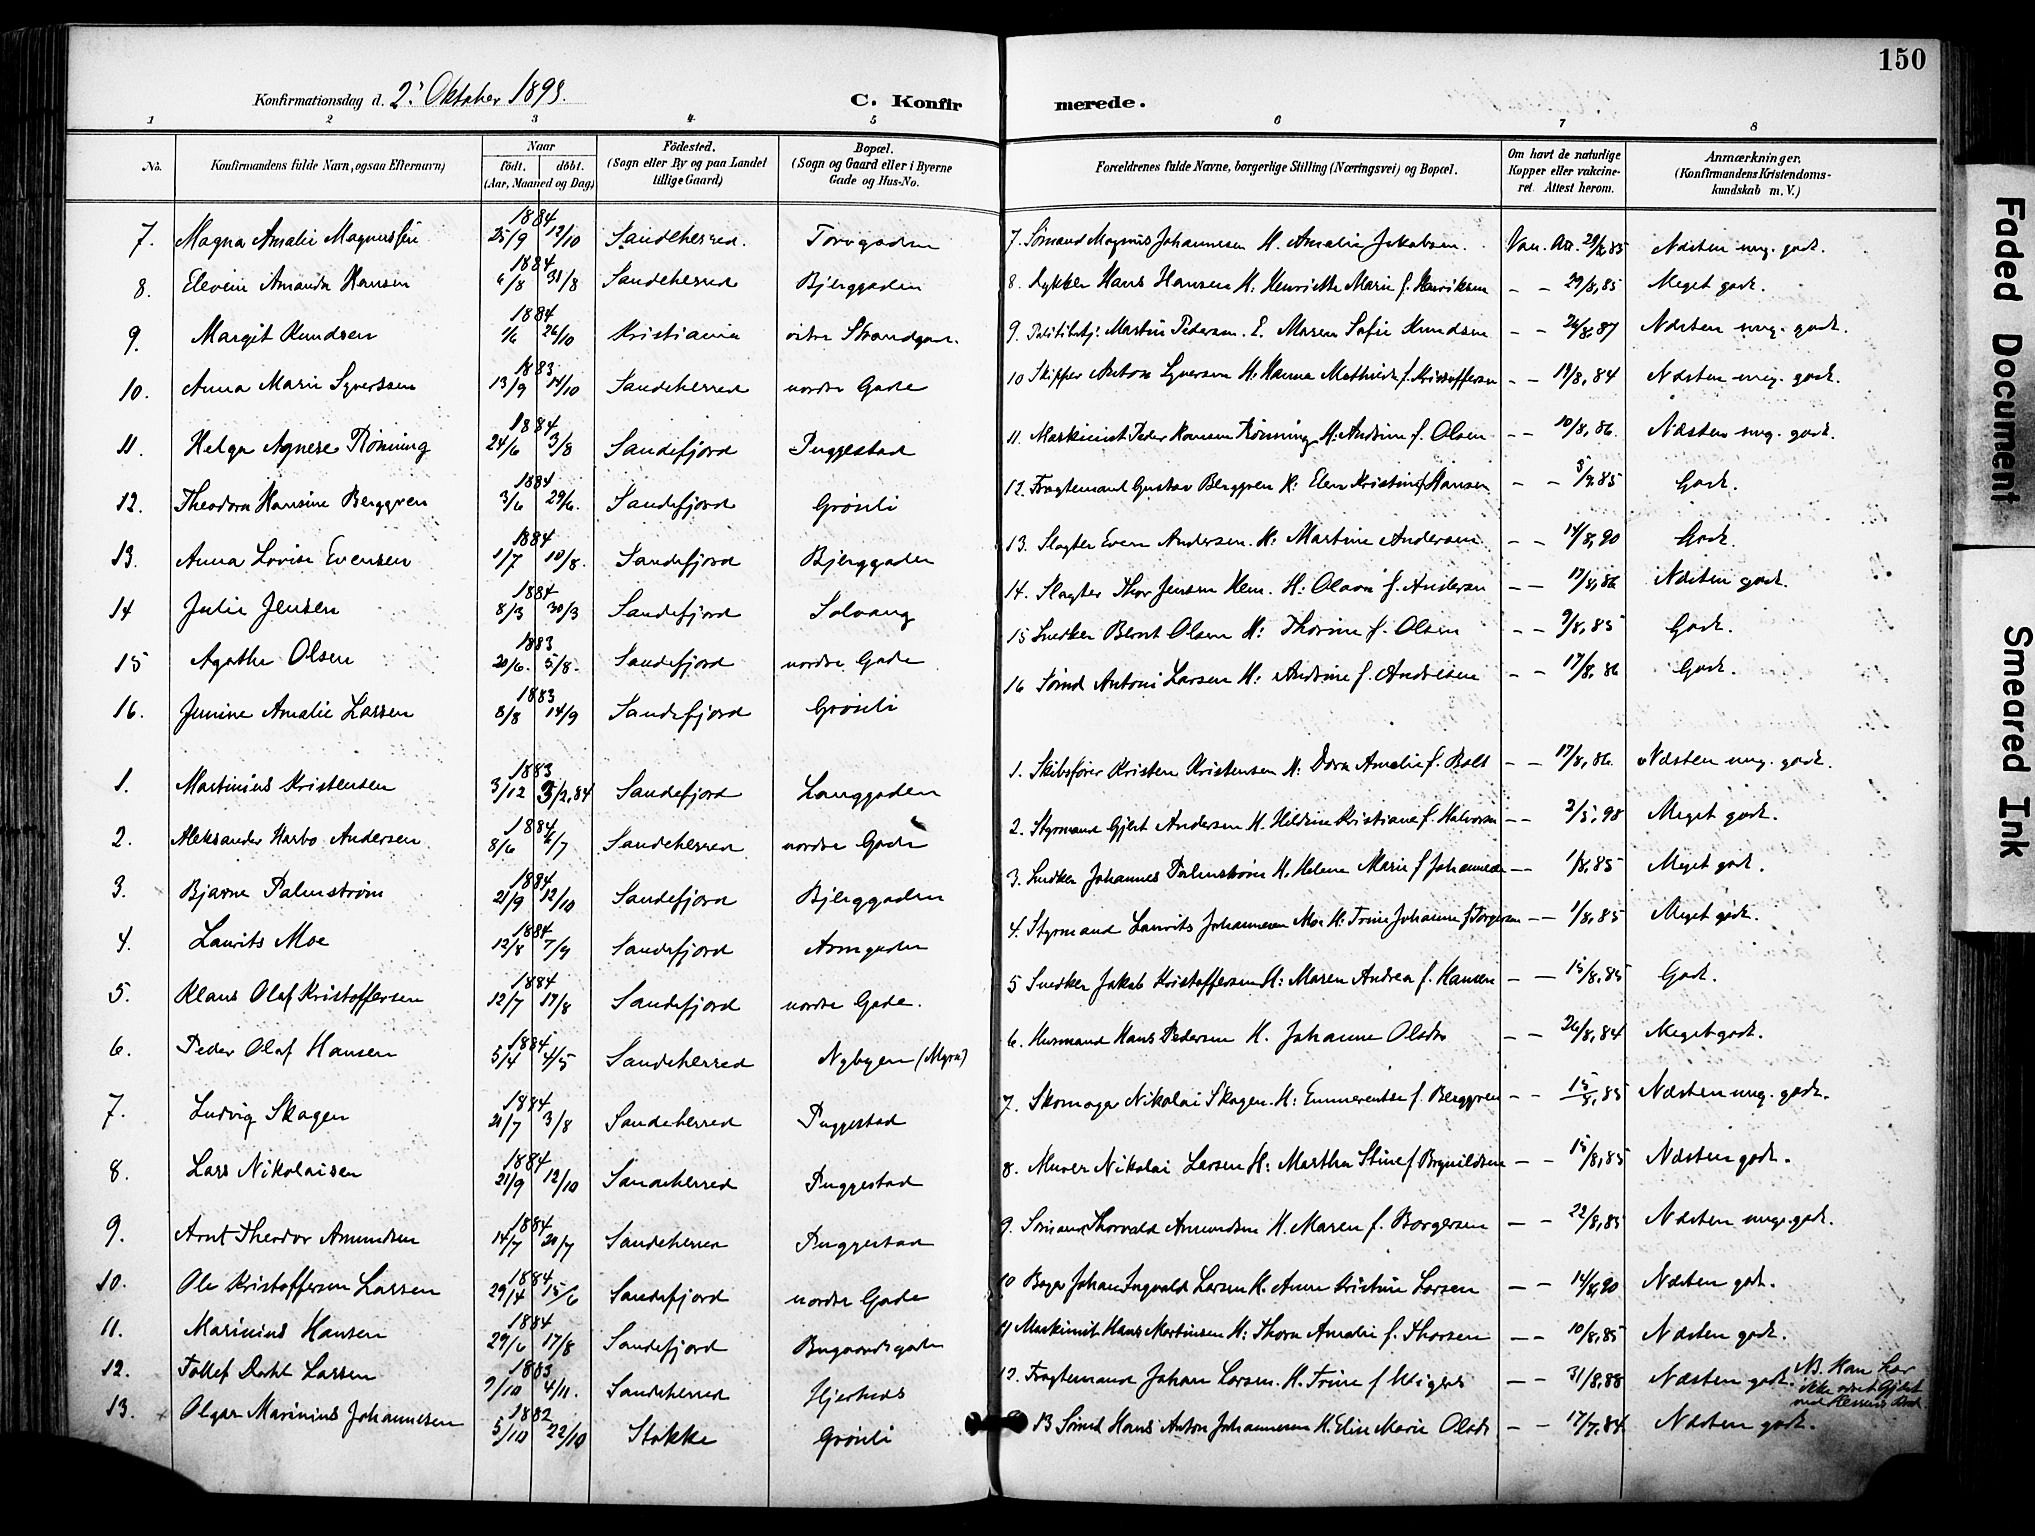 150
Konfirmationsdag d. 2. Oktober 1898.
C. Konfirmerede.
1 2 3 4 5 6 7 8
No. Konfirmandens fulde Navn, ogsaa Efternavn) Naar födt. döbt. (Aar, Maaned og Dag) Födested. (Sogn eller By og paa Landet tillige Gaard) Bopæl. (Sogn og Gaard eller i Byerne Gade og Hus-No. Forældrenes fulde Navne, borgerlige Stilling (Næringsvei) og Bopæl. Om havt de naturlige Kopper eller vaccineret. Attest herom. Anmærkninger. (Konfirmandens Kristendomskundskab m. V.)
7. Magna Amalie 1884 25/9 12/10 Sandeherred. Torvgaden 7. Sømand Magnus Johannesen H. Amalie Jakobsen. Vac. Att. 85 Næsten mg. godt.
8. Amanda Hansen 1884 6/8 31/8 Sandeherred Bjerggaden 8. Hans Hansen H. Henriette Marie f. Henriksen – – 29/8,85 Meget godt.
9. Margit Knudsen 1884 1/6 26/10 Kristiania Strandgad. 9. Martin Pedersen. E. Maren Sofie Knudsen – – 87 Næsten mg. godt.
10. Anna Marie Syversen 1883 13/9 14/10 Sandeherred nordre Gade 10 Skipper Anton Syversen H. Hanna Mathilde f. Kristoffersen – – 19/8,84 Næsten mg. godt.
11. Helga Agnese Rønning 1884 24/6 3/8 Sandefjord Puggestad 11. Maskinist Peder Hansen Rønning H. Andrine f. Olsen – – 10/8,86. Næsten mg. godt.
12. Theodora Hansine Berggren 1884 3/6 29/6. Sandefjord Grönli 12. Fragtemand Gustav Berggren H. Elen Kristine f Hansen – – 85 Godt.
13. Anna Lovise Evensen 1884 1/7 10/8. Sandefjord Bjerggaden 13. Slagter Even Andersen. H. Martine Andersen – – 14/8,90 Godt.
14 Julie Jensen 1884 8/3 30/3 Sandefjord Solvang 14. Slagter Thor Jensen H: Olava f. Andersen – – 17/8,86 Næsten godt.
15 Agathe Olsen 1883 20/6. 5/8. Sandefjord nordre Gade 15 Snedker Bernt Olsen H: Thorine f. Olsen – – 9/8,85 Godt.
16. Jenine Amalie Larsen 1883 8/8 14/9 Sandefjord Grönli 16 Sømd Antoni Larsen H: Andrine f. Andresen – – 17/8,86 Godt.
1. Martinius Kristensen 1883 3/12 3/2,84 Sandefjord Langgaden 1. Skibsfører Kristen Kristensen H: Dora Amalie f. – – 17/8,86. Næsten mg. godt.
2. Aleksander Harbo Andersen 1884 8/6 6/7 Sandeherred nordre Gade 2. Styrmand Gjert Andersen H. Kristiane f. Halvorsen – – 98 Meget godt.
3. Bjarne Palmstrøm 1884 21/9 12/10 Sandefjord Bjerggaden 3. Snedker Johannes Palmstrøm H. Helene Marie f Johannesen – – 1/8,85 Meget godt.
4. Laurits Moe 1884 12/8 7/9 Sandefjord 4. Styrmand Laurits Johannesen Moe H: Trine Johanne f Torgersen – – 1/8,85 Meget godt.
5. Klaus Olaf Kristoffersen 1884 12/7 17/8 Sandefjord nordre Gade. 5 Snedker Jakob Kristoffersen H: Maren Andrea f. Hansen – – 15/8,85 Godt.
6. Peder Olaf Hansen 1884 5/4 4/5 Sandeherred Nybyen (Myra) 6. Husmand Hans Pedersen H. Johanne Olsdtr – – 26/8,84 Meget godt.
7. Ludvig Skagen 1884 21/7 3/8 Sandeherred Puggestad 7. Skomager Nikolai Skagen. H: Emmerentse f. Berggren – – 15/8,85 Næsten mg. godt.
8. Lars Nikolaisen 1884 21/9 12/10 Sandeherred Puggestad 8. Murer Nikolai Larsen H: Martha Stine f Brynildsen – – 15/8,85 Næsten godt.
9. Arnt Theodor Amundsen 1884 14/7 20/7 Sandeherred Puggestad 9. Sømand Thorvald Amundsen H. Maren f. Borgersen – – 22/8,85 Næsten mg. godt.
10. Ole Kristoffersen Larsen 1884 29/4 15/6 Sandefjord nordre Gade 10 Bager Johan Ingvald Larsen H. Anne Kristine Larsen – – 14/8,90 Næsten godt.
11. Marinius Hansen 1884 29/6 17/8 Sandefjord Bugaardsgaden 11 Maskinist Hans Martinsen H: Thora Amalie f. Thorsen – – 10/8,85 Næsten godt.
12. Tollef Dahl Larsen 1883 9/10 4/11. Sandeherred Hjertnes 12. Fragtemand Johan Larsen. H. Trine f – – 31/8,88 Næsten godt. NB. Han har ikke
13. Olgar Marinius Johannesen 1882 5/10 22/10 Stokke Grönli 13 Sømd Hans Anton Johannesen H. Elin Marie Olsdt – – 17/7,84 Næsten godt.
Faded Document
Smeared Ink